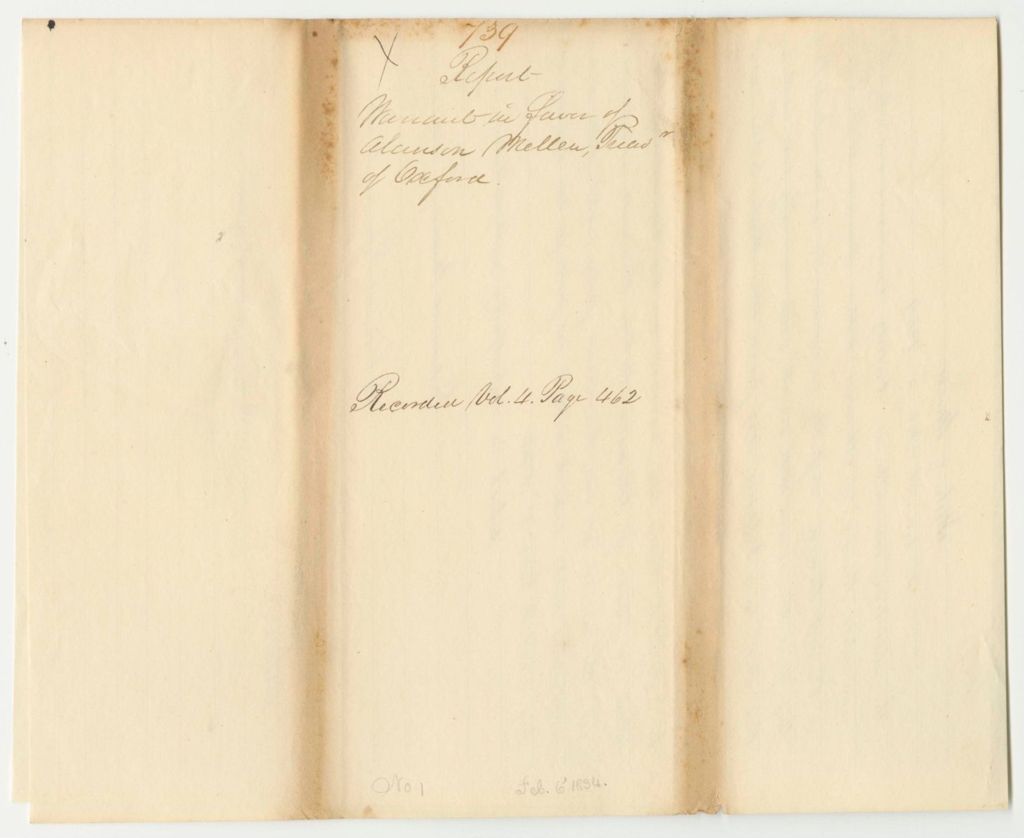 739
X
Report
Warrant in favor of
Alanson Mellen, Treasr
of Oxford.
Recorded Vol. 4. Page 462
No 1 Feb. 6 1834.